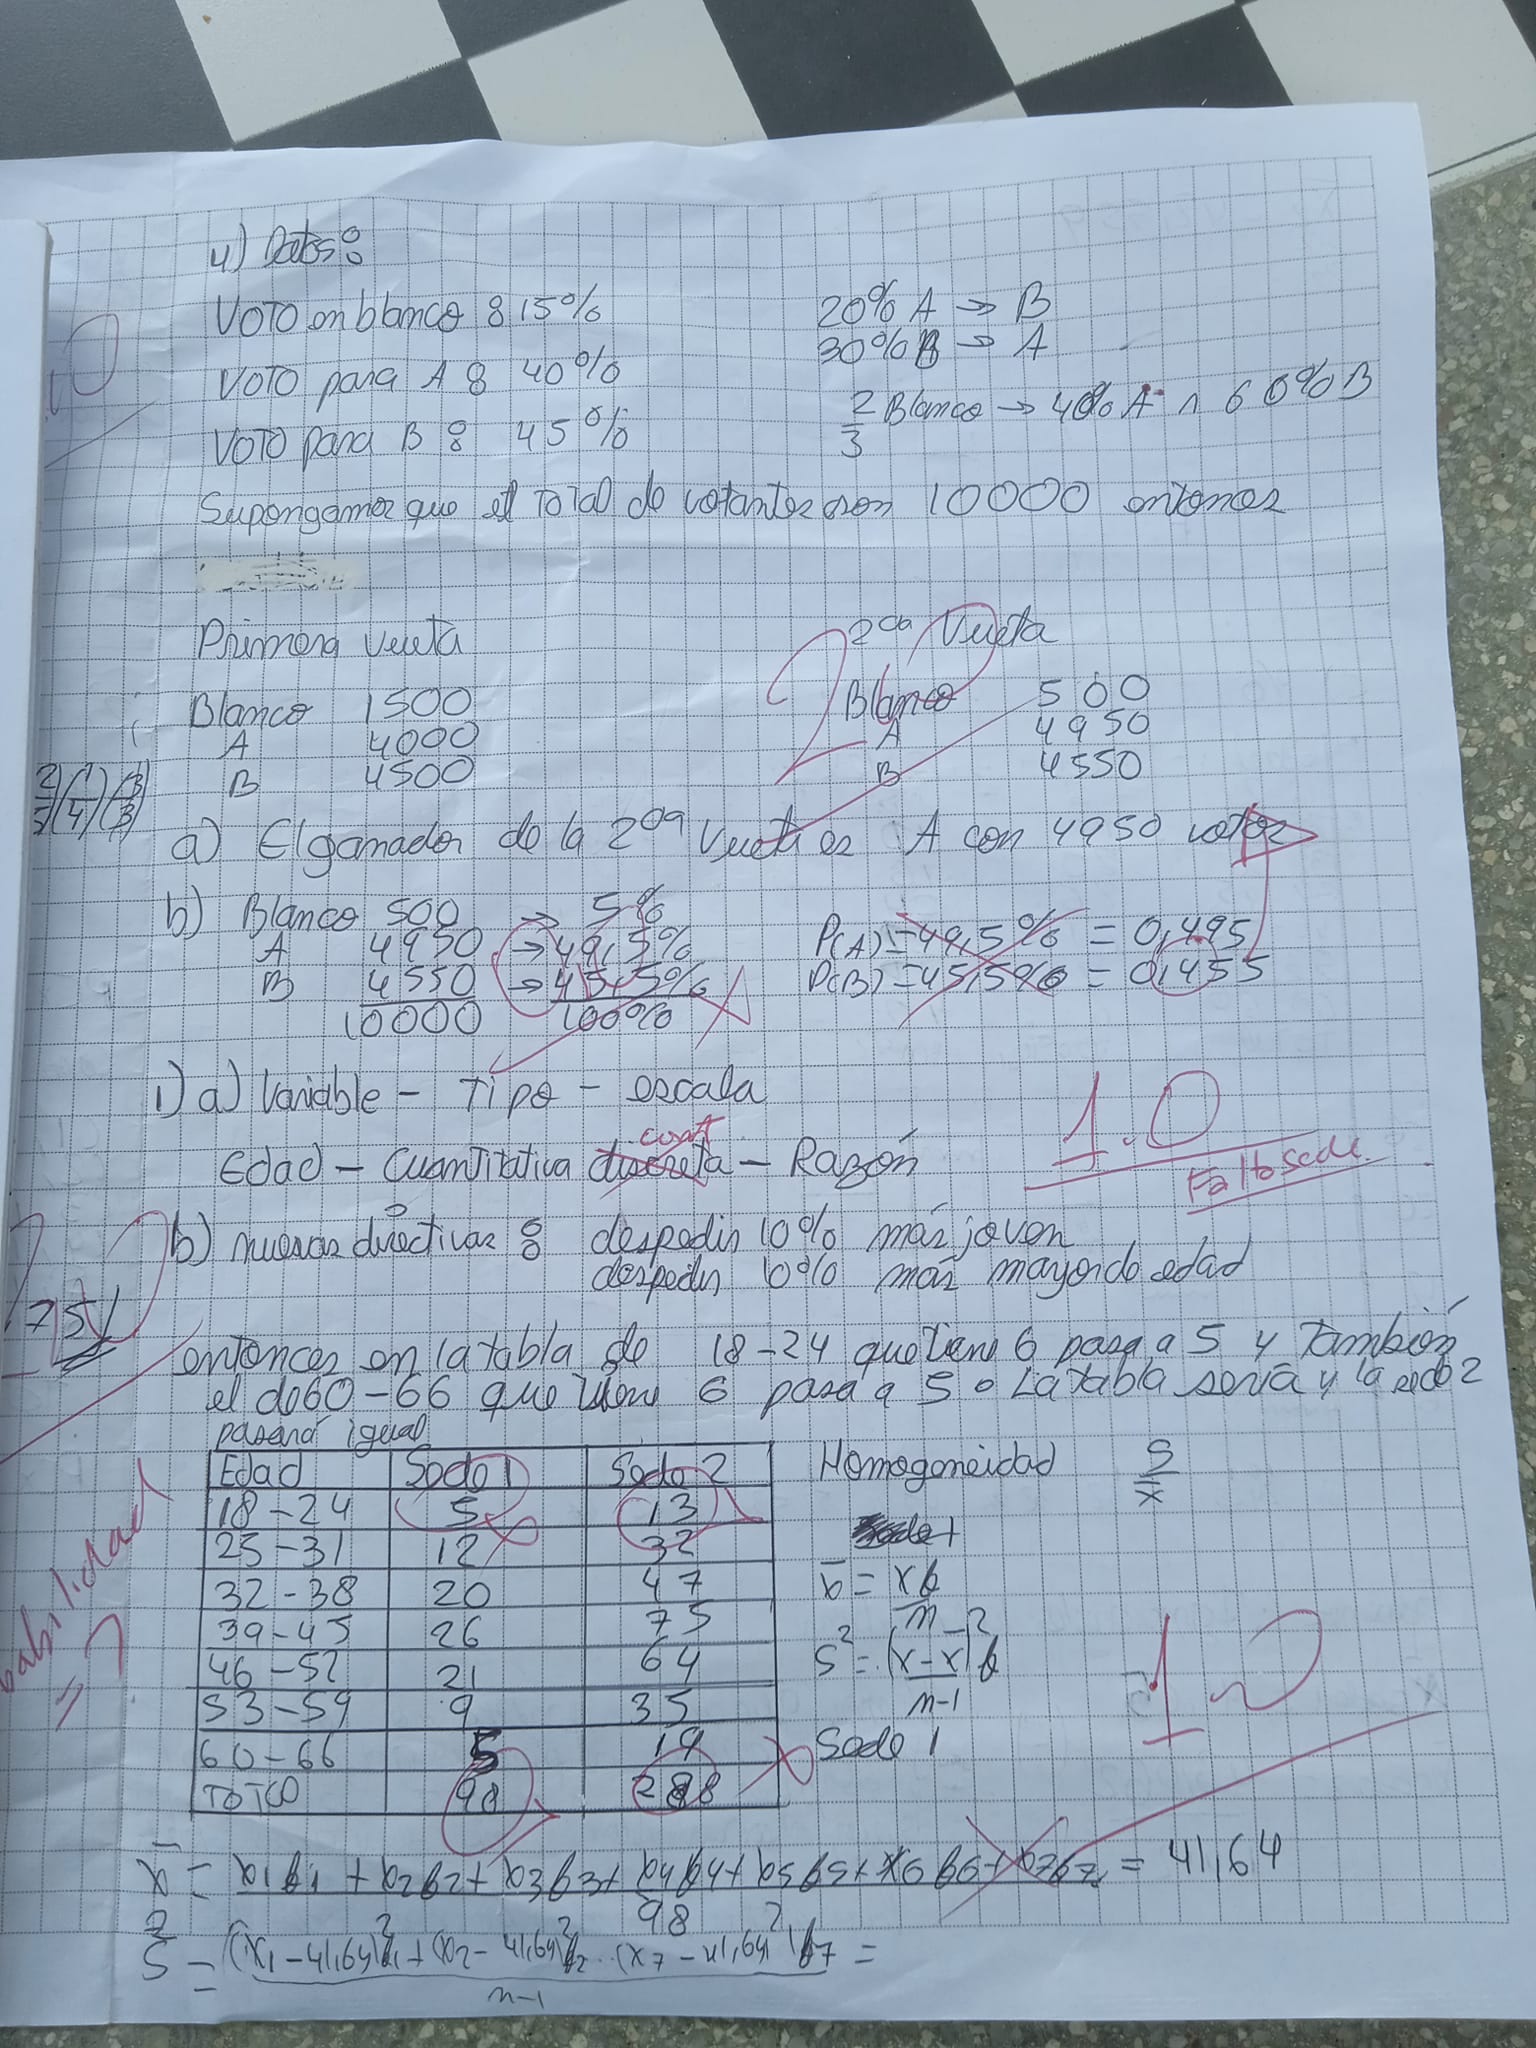 4) Datos:
Voto en blanco : 15%
20% A → B
Voto para A : 40%
30% B → A
Voto para B : 45%
2/3 Blanco → 40% A ∧ 60% B
Supongamos que el total de votantes son 10000 entonces
Primera vuelta
2da Vuelta
2.0
Blanco 1500
Blanco 500
A 4000
A 4950
B 4500
B 4550
a) El ganador de la 2da vuelta es A con 4950 votos
b) Blanco 500 → 5%
A 4950 → 49,5%
P(A) = 49,5% = 0,495
B 4550 → 45,5%
P(B) = 45,5% = 0,455
10000 100%
1) a) Variable – Tipo – escala
cont
Edad – Cuantitativa discreta – Razón
1.0
Falto sede.
b) nuevas directivas : despedir 10% más joven
despedir 10% más mayor de edad
entonces en la tabla de 18-24 que tiene 6 pasa a 5 y también
el de 60-66 que tiene 6 pasa a 5. La tabla sería y la sede 2
pasará igual
Edad Sede 1 Sede 2
18-24 5 13
25-31 12 32
32-38 20 47
39-45 26 75
46-52 21 64
53-59 9 35
60-66 5 19
98 288
Homogeneidad S/x̄
x̄ = xf/n
S² = (x-x̄)²f/n-1
1.0
Sede 1
x̄ = x1f1 + x2f2 + x3f3 + x4f4 + x5f5 + x6f6 + x7f7 = 41,64
98
S² = (x1-41,64)²f1 + (x2-41,64)²f2 ... (x7-41,64)²f7 =
n-1